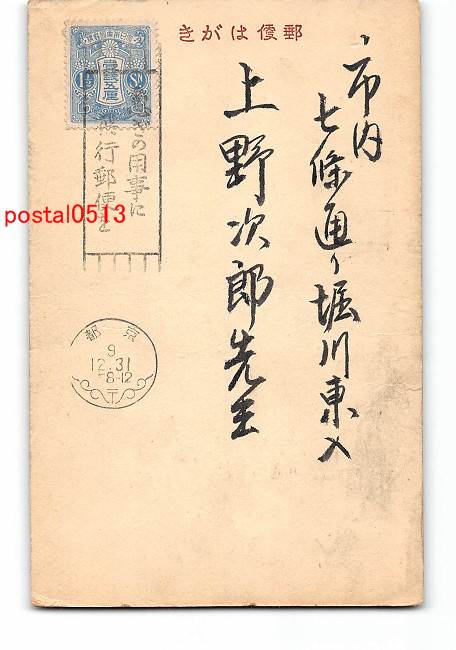 きがは便郵
市内
七條通り堀川東入
上野次郎先生
壹錢五厘
1½ Sn
急ぎの用事に
飛行郵便を
postal0513
都京
9
12.31
8-12
〒